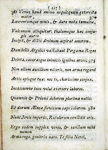 At Venus haud animo nequicquam exterrita mater
Laurentumque minis, & duro mota tumultu,
Vulcanum alloquitur, thalamoque hæc conjugis aureo
Incipit, & dictis divinum aspirat amorem:
Dum bello Argolici vastabant Pergama Reges
Debita, casurasque inimicis ignibus arces,
Non ullum auxilium miseris, non arma rogavi
Artis opisque tuæ, nec te, charissime conjux,
Incassumve tuos volui exercere labores,
Quamvis & Priami deberem plurima natis,
Et durum Æneæ flevissem sæpe laborem.
Nunc Jovis imperiis, Rutulorum constitit oris.
Ergo eadem supplex venio, & sanctum mihi numen
Arma rogo, genitrix nato. Te filia Nerei,